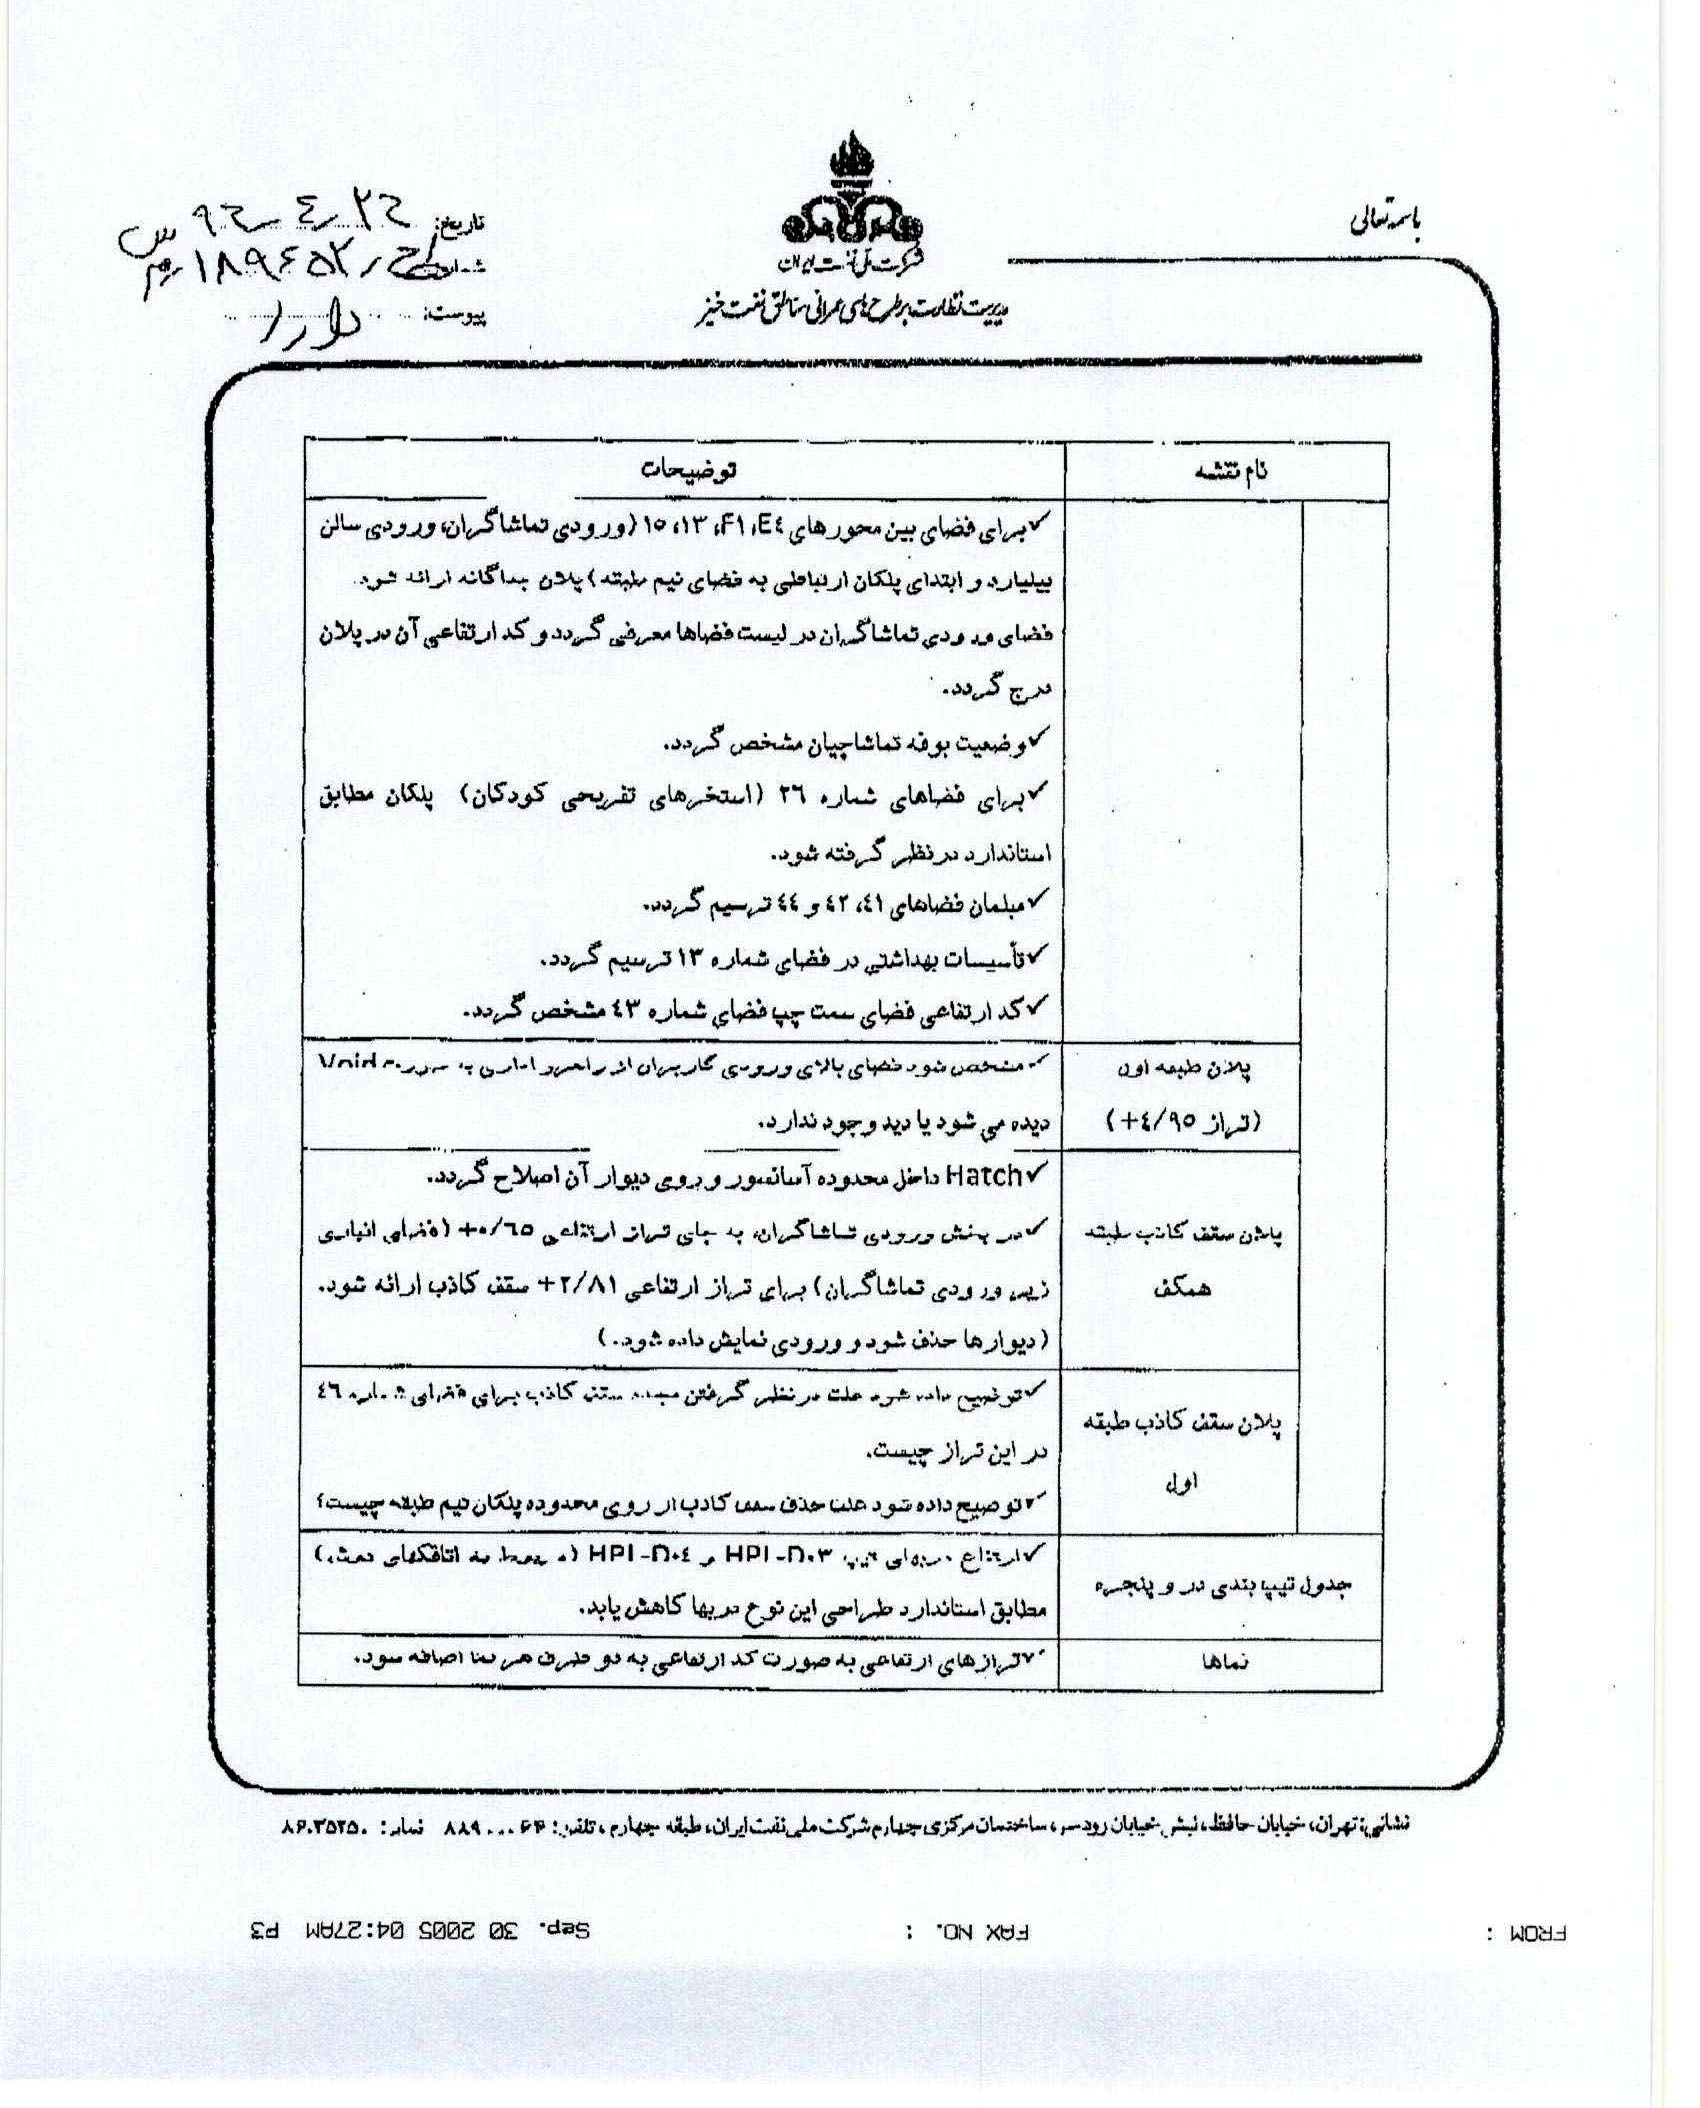 باسمه تعالی
شرکت ملی نفت ایران
مدیریت نظارت بر طرح های عمرانی مناطق نفت خیز
تاریخ:
شماره:
پیوست:
نام نقشه
توضیحات
✓برای فضای بین محورهای E٤، F۱، ۱۳، ۱٥ (ورودی تماشاگران، ورودی سالن
بیلیارد و ابتدای پلکان ارتباطی به فضای نیم طبقه) پلان جداگانه ارائه شود.
فضای ورودی تماشاگران در لیست فضاها معرفی گردد و کد ارتفاعی آن در پلان
درج گردد.
✓وضعیت بوفه تماشاچیان مشخص گردد.
✓برای فضاهای شماره ۲٦ (استخرهای تفریحی کودکان) پلکان مطابق
استاندارد در نظر گرفته شود.
✓مبلمان فضاهای ٤۱، ٤۲ و ٤٤ ترسیم گردد.
✓تأسیسات بهداشتی در فضای شماره ۱۳ ترسیم گردد.
✓کد ارتفاعی فضای سمت چپ فضای شماره ٤۳ مشخص گردد.
پلان طبقه اول
(تراز ٤/۹٥+)
✓مشخص شود فضای بالای ورودی کاربران از راهرو اداری به صورت Void
دیده می شود یا دید وجود ندارد.
پلان سقف کاذب طبقه
همکف
✓Hatch داخل محدوده آسانسور و روی دیوار آن اصلاح گردد.
✓در بخش ورودی تماشاگران، به جای تراز ارتفاعی ۰/٦٥+ (فضای انباری
زیر ورودی تماشاگران) برای تراز ارتفاعی ۲/۸۱+ سقف کاذب ارائه شود.
(دیوارها حذف شود و ورودی نمایش داده شود.)
پلان سقف کاذب طبقه
اول
✓توضیح داده شود علت در نظر گرفتن مجدد سقف کاذب برای فضای شماره ٤٦
در این تراز چیست.
✓توضیح داده شود علت حذف سقف کاذب از روی محدوده پلکان نیم طبقه چیست؟
جدول تیپ بندی در و پنجره
✓ارتفاع دربهای تیپ HPL-D۰۳ و HPL-D۰٤ (مربوط به اتاقکهای دوش)
مطابق استاندارد طراحی این نوع دربها کاهش یابد.
نماها
✓ترازهای ارتفاعی به صورت کد ارتفاعی به دو طرف هر نما اضافه شود.
نشانی: تهران، خیابان حافظ، نبش خیابان رودسر، ساختمان مرکزی چهارم شرکت ملی نفت ایران، طبقه چهارم، تلفن: نمابر:
FROM : FAX NO. : Sep. 30 2005 04:27AM P3